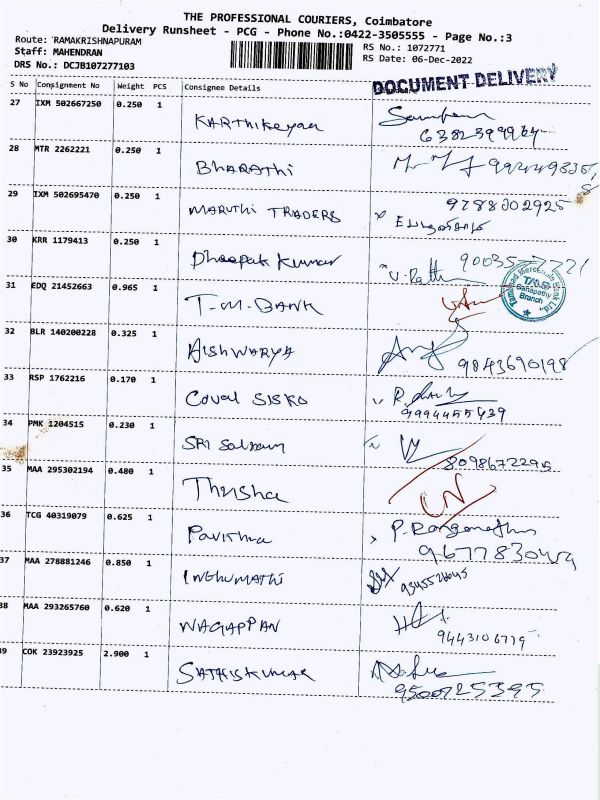 THE PROFESSIONAL COURIERS, Coimbatore
Delivery Runsheet - PCG - Phone No.:0422-3505555 - Page No.:3
Route: RAMAKRISHNAPURAM
Staff: MAHENDRAN
DRS No.: DCJB107277103
RS No.: 1072771
RS Date: 06-Dec-2022
S No Consignment No Weight PCS Consignee Details DOCUMENT DELIVERY
27 IXM 502667250 0.250 1 KARTHIKeyan
28 MTR 2262221 0.250 1 BHARAThi
29 IXM 502695470 0.250 1 MARUTHI TRADERS 9788302925
30 KRR 1179413 0.250 1 Dheepak Kumar
31 EDQ 21452663 0.965 1 T.M.BANK
Tamilnad Mercantile Bank Ltd.,
TMB
Ganapathy
Branch
32 BLR 140200228 0.325 1 AISHWARYA 9843690198
33 RSP 1762216 0.170 1 COVAI SISKO 9994455439
34 PMK 1204515 0.230 1 SRI 8098672295
35 MAA 295302194 0.480 1 Thrisha
36 TCG 40319079 0.625 1 Pavithra P. Ranganathan
37 MAA 278881246 0.850 1 INDHUMATHI
38 MAA 293265760 0.620 1 NAGAPPAN 9443106779
39 COK 23923925 2.900 1 SATHISKUMAR 9500725395